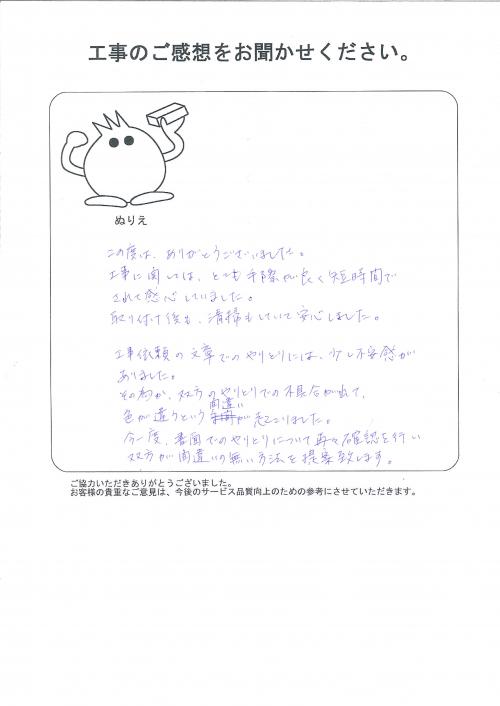 工事のご感想をお聞かせください。
ぬりえ
この度は、ありがとうございました。
工事に関しては、とても手際が良く短時間で
されて感心していました。
取り付け後も、清掃もしていて安心しました。
工事依頼の文章でのやりとりには、少し不安感が
ありました。
そのわか、双方のやりとりでの不具合が出て、
間違い
色が違うという が起こりました。
今一度、書面でのやりとりについて再々確認を行い
双方が間違いの無い方法を提案致します。
ご協力いただきありがとうございました。
お客様の貴重なご意見は、今後のサービス品質向上のための参考にさせていただきます。